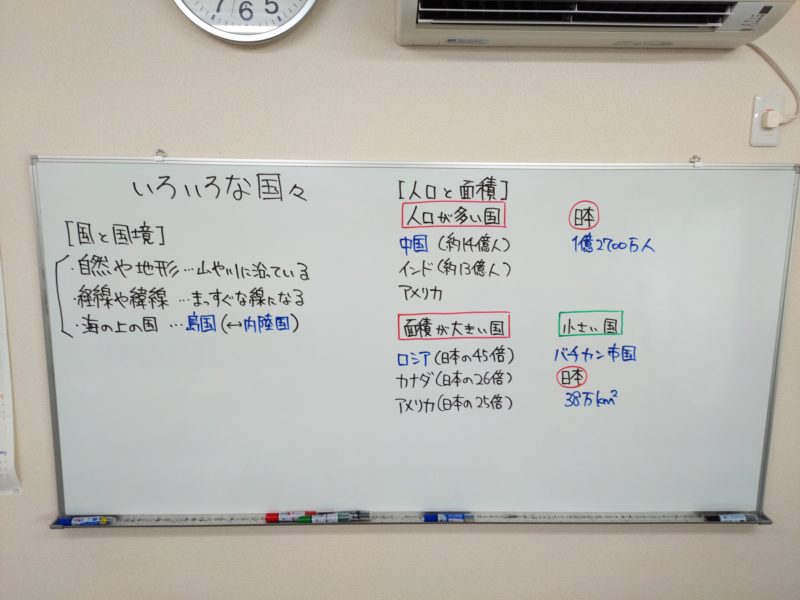 7 6 5
いろいろな国々
[国と国境]
・自然や地形…山や川に沿っている
・経線や緯線…まっすぐな線になる
・海の上の国…島国(↔内陸国)
[人口と面積]
人口が多い国
中国(約14億人)
インド(約13億人)
アメリカ
日本
1億2700万人
面積が大きい国
ロシア(日本の45倍)
カナダ(日本の26倍)
アメリカ(日本の25倍)
小さい国
バチカン市国
日本
38万km²